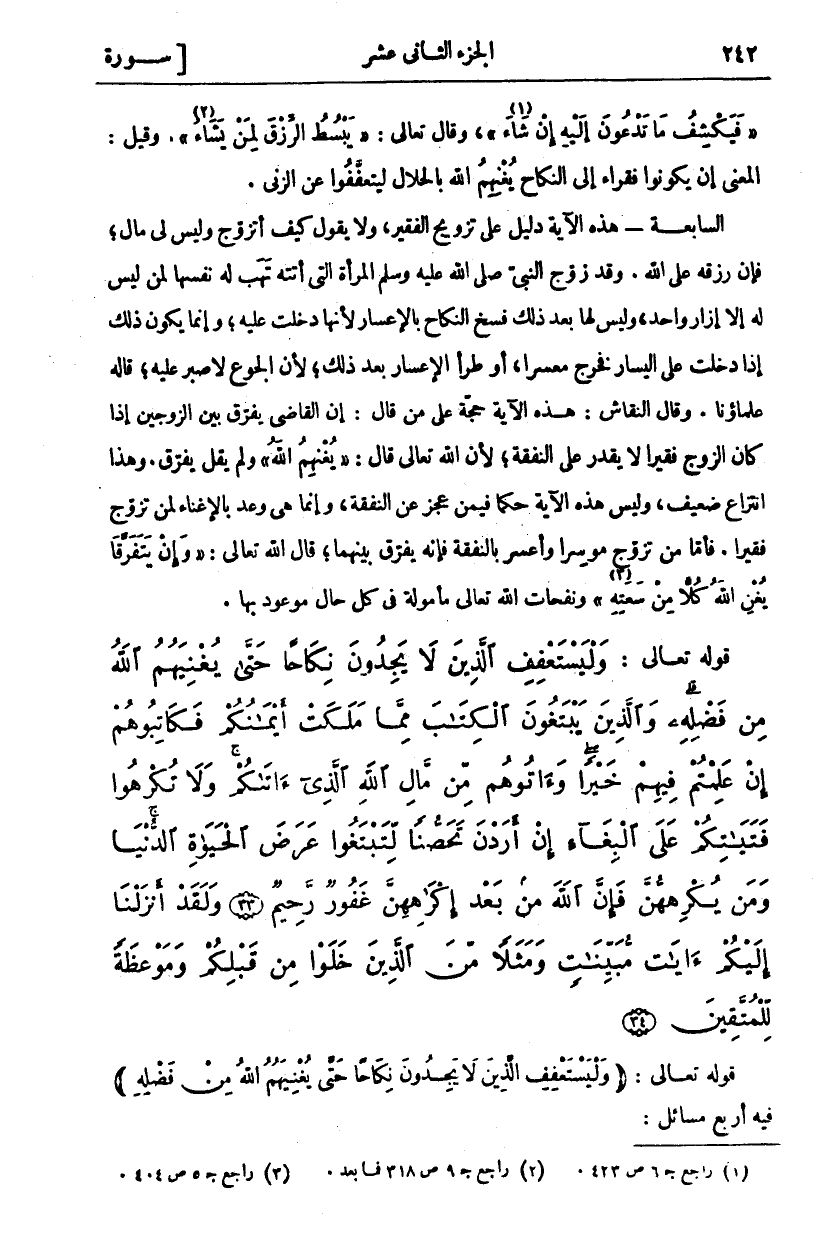 ٢٤٢ الجزء الثانى عشر [ ســورة
« فَيَكْشِفُ مَا تَدْعُونَ إِلَيْهِ إِنْ شَاءَ (١) »، وقال تعالى : « يَبْسُطُ الرِّزْقَ لِمَنْ يَشَاءُ (٢) » . وقيل :
المعنى إن يكونوا فقراء إلى النكاح يُغْنِهِمُ الله بالحلال ليتعفَّفُوا عن الزنى .
السابعــة — هذه الآية دليل على تزويج الفقير، ولا يقول كيف أتزوّج وليس لى مال؛
فإن رزقه على الله . وقد زوّج النبىّ صلى الله عليه وسلم المرأة التى أتته تَهَب له نفسها لمن ليس
له إلا إزار واحد، وليس لها بعد ذلك فسخ النكاح بالإعسار لأنها دخلت عليه؛ وإنما يكون ذلك
إذا دخلت على اليسار فخرج معسرا، أو طرأ الإعسار بعد ذلك؛ لأن الجوع لا صبر عليه؛ قاله
علماؤنا . وقال النقاش : هــذه الآية حجّة على من قال : إن القاضى يفرّق بين الزوجين إذا
كان الزوج فقيرا لا يقدر على النفقة؛ لأن الله تعالى قال : « يُغْنِهِمُ اللَّهُ » ولم يقل يفرّق. وهذا
انتزاع ضعيف، وليس هذه الآية حكما فيمن عجز عن النفقة، وإنما هى وعد بالإغناء لمن تزوّج
فقيرا . فأمّا من تزوّج موسِرا وأعسر بالنفقة فإنه يفرّق بينهما؛ قال الله تعالى : « وَإِنْ يَتَفَرَّقَا
يُغْنِ اللَّهُ كُلًّا مِنْ سَعَتِهِ (٣) » ونفحات الله تعالى مأمولة فى كل حال موعود بها .
قوله تعـالى : وَلْيَسْتَعْفِفِ ٱلَّذِينَ لَا يَجِدُونَ نِكَاحًا حَتَّىٰ يُغْنِيَهُمُ ٱللَّهُ
مِن فَضْلِهِۦۗ وَٱلَّذِينَ يَبْتَغُونَ ٱلْكِتَٰبَ مِمَّا مَلَكَتْ أَيْمَٰنُكُمْ فَكَاتِبُوهُمْ
إِنْ عَلِمْتُمْ فِيهِمْ خَيْرًاۖ وَءَاتُوهُم مِّن مَّالِ ٱللَّهِ ٱلَّذِىٓ ءَاتَىٰكُمْۚ وَلَا تُكْرِهُوا
فَتَيَٰتِكُمْ عَلَى ٱلْبِغَآءِ إِنْ أَرَدْنَ تَحَصُّنًا لِّتَبْتَغُوا عَرَضَ ٱلْحَيَوٰةِ ٱلدُّنْيَاۚ
وَمَن يُكْرِههُّنَّ فَإِنَّ ٱللَّهَ مِنۢ بَعْدِ إِكْرَٰهِهِنَّ غَفُورٌ رَّحِيمٌ ٣٣ وَلَقَدْ أَنزَلْنَا
إِلَيْكُمْ ءَايَٰتٍ مُّبَيِّنَٰتٍ وَمَثَلًا مِّنَ ٱلَّذِينَ خَلَوْا مِن قَبْلِكُمْ وَمَوْعِظَةً
لِّلْمُتَّقِينَ ٣٤
قوله تعـالى : ﴿ وَلْيَسْتَعْفِفِ الَّذِينَ لَا يَجِـدُونَ نِكَاحًا حَتَّى يُغْنِيَهُمُ اللهُ مِنْ فَضْلِهِ ﴾
فيه أربع مسائل :
(١) راجع جـ ٦ ص ٤٢٣ . (٢) راجع جـ ٩ ص ٣١٨ فما بعد . (٣) راجع جـ ٥ ص ٤٠٤ .